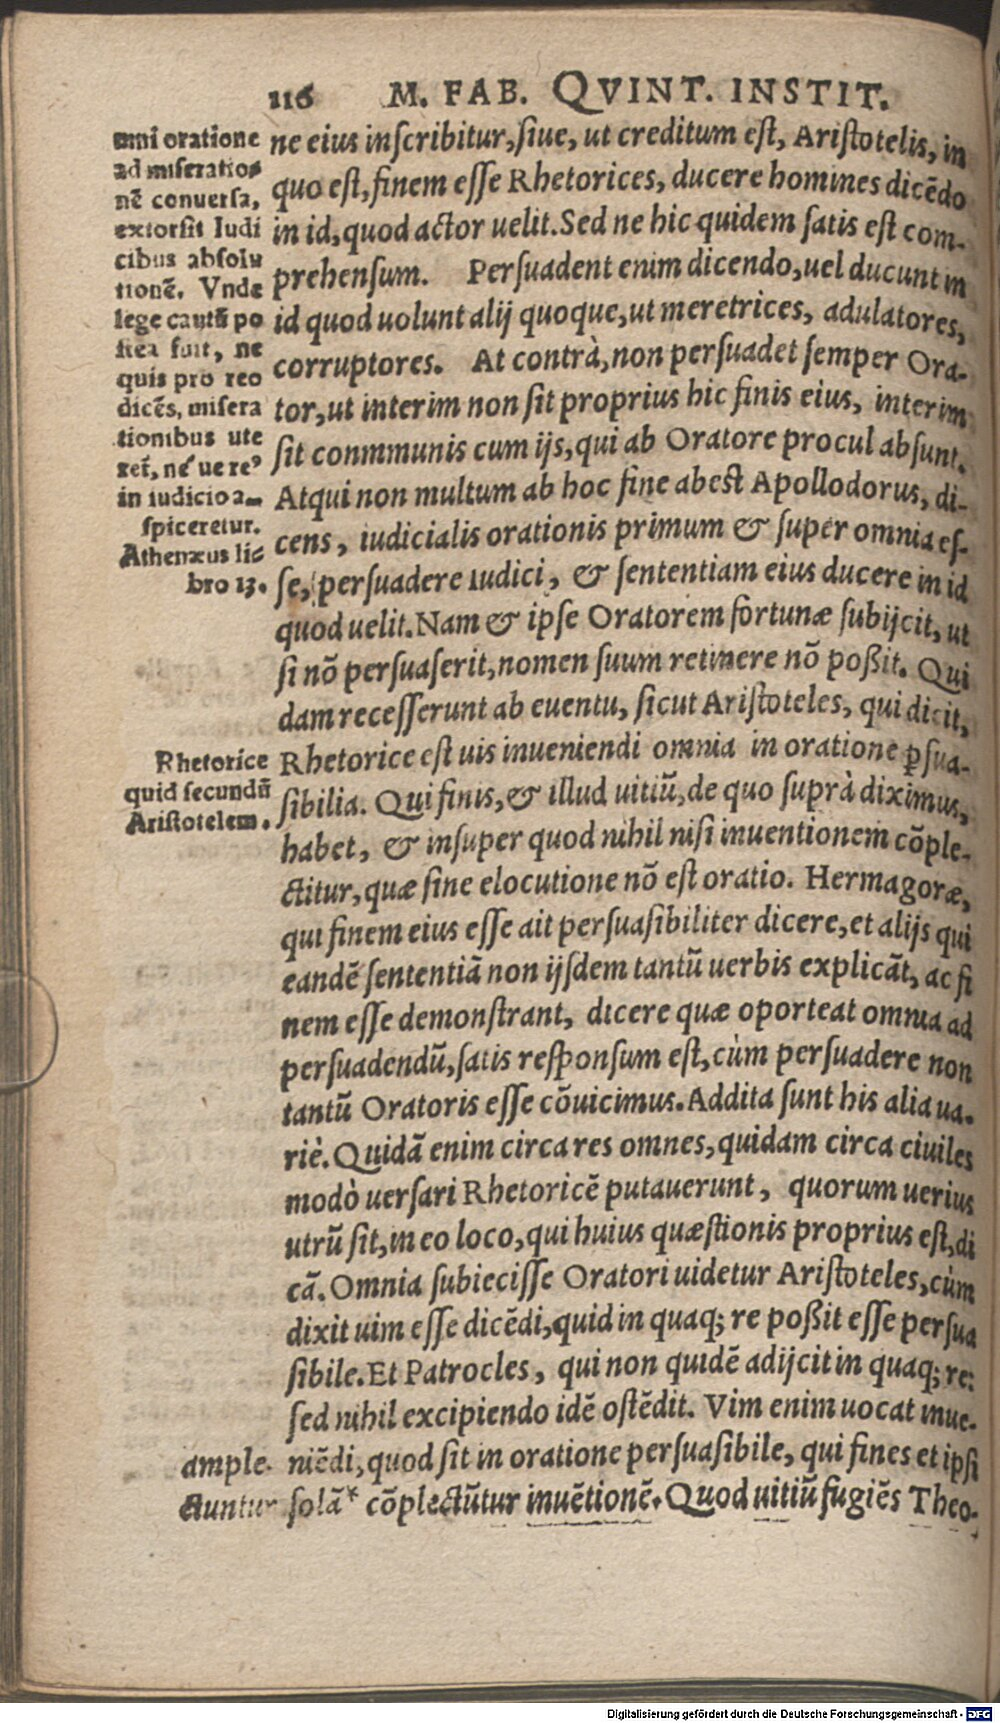 116 M. FAB. QVINT. INSTIT.
omni oratione
ad miseratio⸗
nē conuersa,
extorsit Iudi
cibus absolu
tionē. Vnde
lege cautū po
stea fuit, ne
quis pro reo
dicēs, misera
tionibus ute
in iudicio a⸗
spiceretur.
Athenæus li⸗
bro 13.
Rhetorice
quid secundū
Aristotelem.
ample⸗
ctuntur
ne eius inscribitur, siue, ut creditum est, Aristotelis, in
quo est, finem esse Rhetorices, ducere homines dicēdo
in id, quod actor uelit. Sed ne hic quidem satis est com-
prehensum. Persuadent enim dicendo, uel ducunt in
id quod uolunt alij quoque, ut meretrices, adulatores,
corruptores. At contrà, non persuadet semper Ora-
tor, ut interim non sit proprius hic finis eius, interim
sit conmmunis cum ijs, qui ab Oratore procul absunt.
Atqui non multum ab hoc fine abest Apollodorus, di-
cens, iudicialis orationis primum & super omnia es-
se, persuadere iudici, & sententiam eius ducere in id
quod uelit. Nam & ipse Oratorem fortunæ subijcit, ut
si nō persuaserit, nomen suum retinere nō poßit. Qui
dam recesserunt ab euentu, sicut Aristoteles, qui dicit,
Rhetorice est uis inueniendi omnia in oratione ꝑsua-
sibilia. Qui finis, & illud uitiū, de quo suprà diximus,
habet, & insuper quod nihil nisi inuentionem cōple-
ctitur, quæ sine elocutione nō est oratio. Hermagoræ,
qui finem eius esse ait persuasibiliter dicere, et alijs qui
eandē sententiā non ijsdem tantū uerbis explicāt, ac fi
nem esse demonstrant, dicere quæ oporteat omnia ad
persuadendū, satis responsum est, cùm persuadere non
tantū Oratoris esse cōuicimus. Addita sunt his alia ua-
riè. Quidā enim circa res omnes, quidam circa ciuiles
modò uersari Rhetoricē putauerunt, quorum uerius
utrū sit, in eo loco, qui huius quæstionis proprius est, di
cā. Omnia subiecisse Oratori uidetur Aristoteles, cùm
dixit uim esse dicēdi, quid in quaq; re poßit esse persua
sibile. Et Patrocles, qui non quidē adijcit in quaq; re:
sed nihil excipiendo idē ostēdit. Vim enim uocat inue-
niēdi, quod sit in oratione persuasibile, qui fines et ipsi
solā* cōplectūtur inuētionē. Quod uitiū fugiēs Theo-
Digitalisierung gefördert durch die Deutsche Forschungsgemeinschaft - DFG